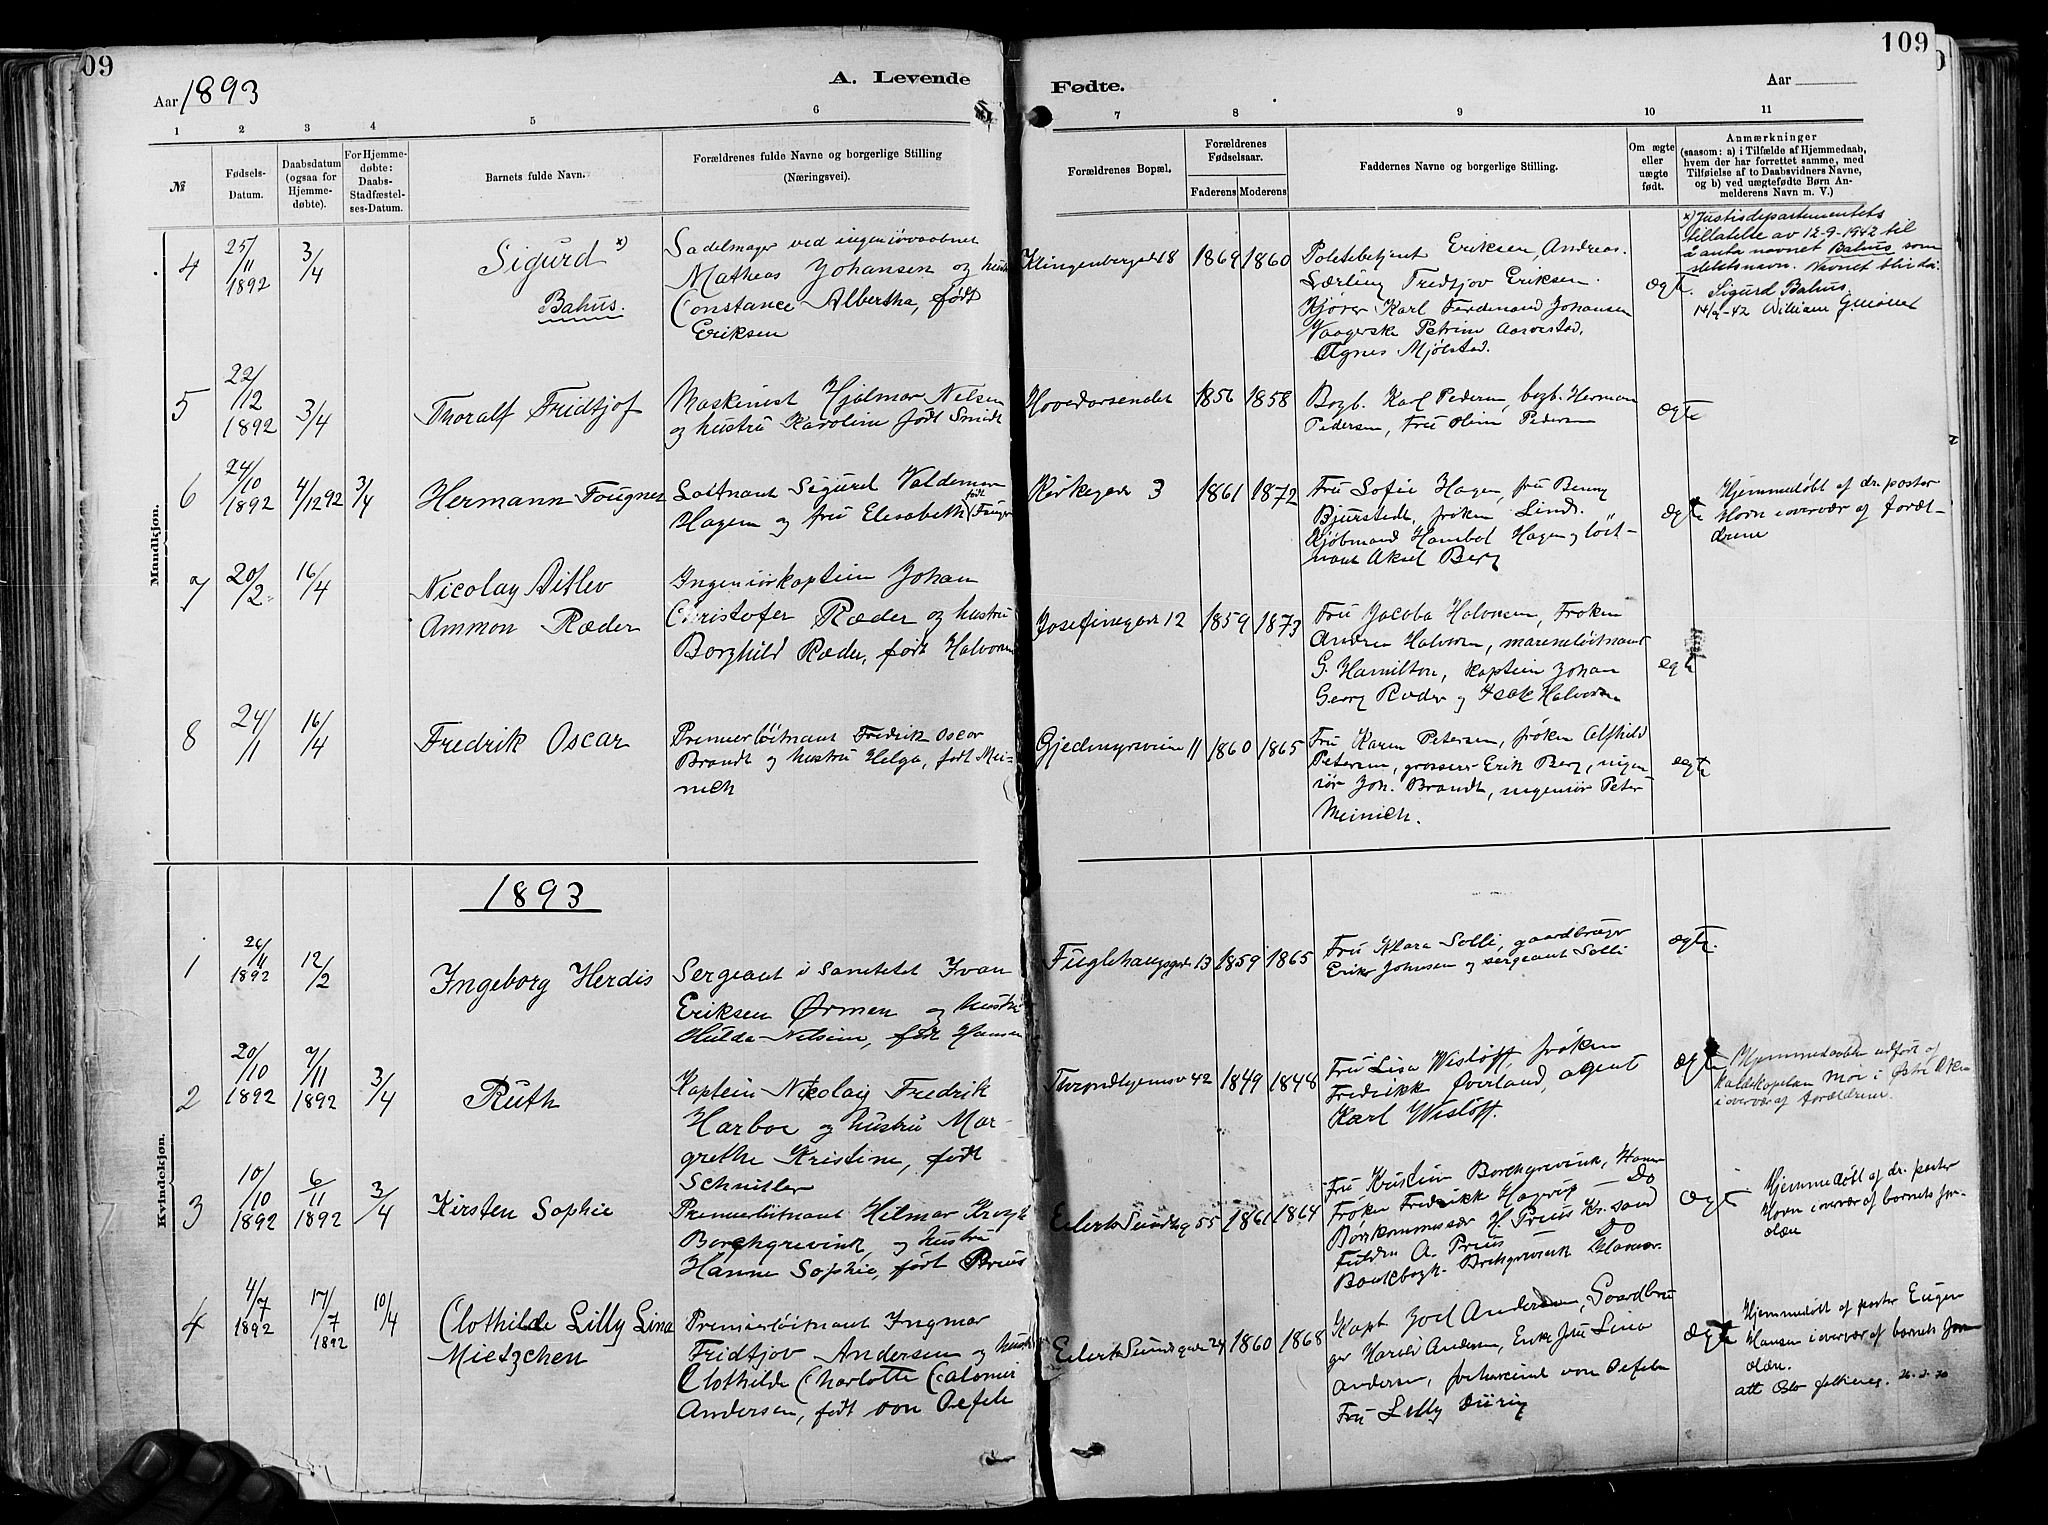 09
109
Aar 1893
A. Levende
Fødte.
Aar
1 2 3 4 5 6 7 8 9 10 11
№
Fødsels-
Datum.
Daabsdatum
(ogsaa for
Hjemme-
døbte).
For Hjemme-
døbte:
Daabs-
Stadfæstel-
ses-Datum.
Barnets fulde Navn.
Forældrenes fulde Navne og borgerlige Stilling
(Næringsvei).
Forældrenes Bopæl.
Forældrenes
Fødselsaar.
Faderens Moderens
Faddernes Navne og borgerlige Stilling.
Om ægte
eller
uægte
født.
Anmærkninger
(saasom: a) i Tilfælde af Hjemmedaab,
hvem der har forrettet samme, med
Tilføielse af to Daabsvidners Navne,
og b) ved uægtefødte Børn An-
melderens Navn m. V.)
Mandkjøn.
4
25/11
1892
3/4
Sigurd x)
Bahus.
Sadelmager ved ingeniørvaabnet
Matheas Johansen og hustru
Constance Albertha, født
Eriksen
Klingenberggd 18
1869 1860
Politibetjent Eriksen, Andreas
Lærling Fredtjov Eriksen.
Kjører Karl Ferdinand Johansen
Petrine
Agnes Mjølstad.
ægte.
x) Justisdepartementets
tillatelse av 12-9-1942 til
å anta navnet Bahus som
slektsnavn. Navnet blir da:
Sigurd Bahus.
14/9-42 William
5
22/12
1892
3/4
Thoralf Fridtjof
Maskinist Hjalmar Nelsen
og hustru Karoline født Smidt
Hovedarsenalet
1856 1858
Bogb. Karl Pedersen, bogb. Herman
Pedersen, fru Oline Pedersen
ægte
6
24/10
1892
4/12 92
3/4
Hermann Fougner
Løitnant Sigurd Valdemar
Hagen og fru Elisabeth født Fougner
Kirkegadn 3
1861 1872
Fru Sofie Hagen, fru Benny
Bjurstedt, frøken Lind.
Kjøbmand Hagen og løit-
nant Aksel Berg
ægte
Hjemmedøbt af dr. pastor
Horn i overvær af foræl-
drene
7
20/2
16/4
Nicolay Ditlev
Ammon Ræder
Ingeniørkaptein Johan
Christofer Ræder og hustru
Borghild Ræder, født Halvorsen
Josefinegade 12
1859 1873
Fru Jacoba Halvorsen, Frøken
Andrea Halvorsen, marineløitnant
G. Hamilton, kaptein Johan
Georg Ræder og Isak Halvorsen
egte
8
24/1
16/4
Fredrik Oscar
Premierløitnant Fredrik Oscar
Brandt og hustru Helga, født Mei-
nich
Gjedmyrsveien 11
1860 1865
Fru Karen Petersen, frøken Alfhild
Petersen, grosserer Erik Berg, ingen-
iør Joh. Brandt, ingeniør Peter
Meinich.
ægte
1893
Kvindekjøn.
1
26/11
1892
12/2
Ingeborg Herdis
Sergeant i Sanitetet Ivan
Eriksen Ørmen og hustru
Hulda Nelsine, født Hansen
Fuglehauggdn 13
1859 1865
Fru Klara Solli, gaardbruger
Erik Johnsen og sergeant Solli
ægte.
2
20/10
1892
7/11
1892
3/4
Ruth
Kaptein Nikolay Fredrik
Harboe og hustru Mar-
grethe Kristine, født
Schnitler
Throndhjemsv 42
1849 1848
Fru Lisa Wisløff, frøken
Fredrikke Øverland, agent
Karl Wisløff.
ægte
Hjemmedaaben udført af
kaldskapelan Moe i Østre Aker
i overvær af forældrene.
3
10/10
1892
6/11
1892
3/4
Kirsten Sophie
Premierløitnant Hilmar Krogh
Borchgrevink, og hustru
Hanne Sophie, født Preus
Eilert Sundtsg 55
1861 1864
Fru Kristine Borchgrevink, Hamar
Frøken Fredrikke Hagerup — Do
H. Preus Kr.sand
A. Preus Do
Bankbogh. Borchgrevink Hamar.
Ægte
Hjemmedøbt af dr. pastor
Horn i overvær af barnets for-
ældre
4
4/7
1892
17/7
1892
10/4
Clothilde Lilly Lina
Mietzchen
Premierløitnant Ingmar
Fridtjov Andersen og hustru
Clothilde Charlotte
Andersen, født von Oefele
Eilert Sundtsgade 24
1860 1868
Kapt Joel Andersen, Gaardbru
ger Harold Andersen, Enke fru Lina
Andersen, von Oefele
Fru Lilly Düring
ægte
Hjemmedøbt af pastor Eugen
Hansen i overvær af barnets for-
ældre.
att Oslo folkereg. 26-2-70